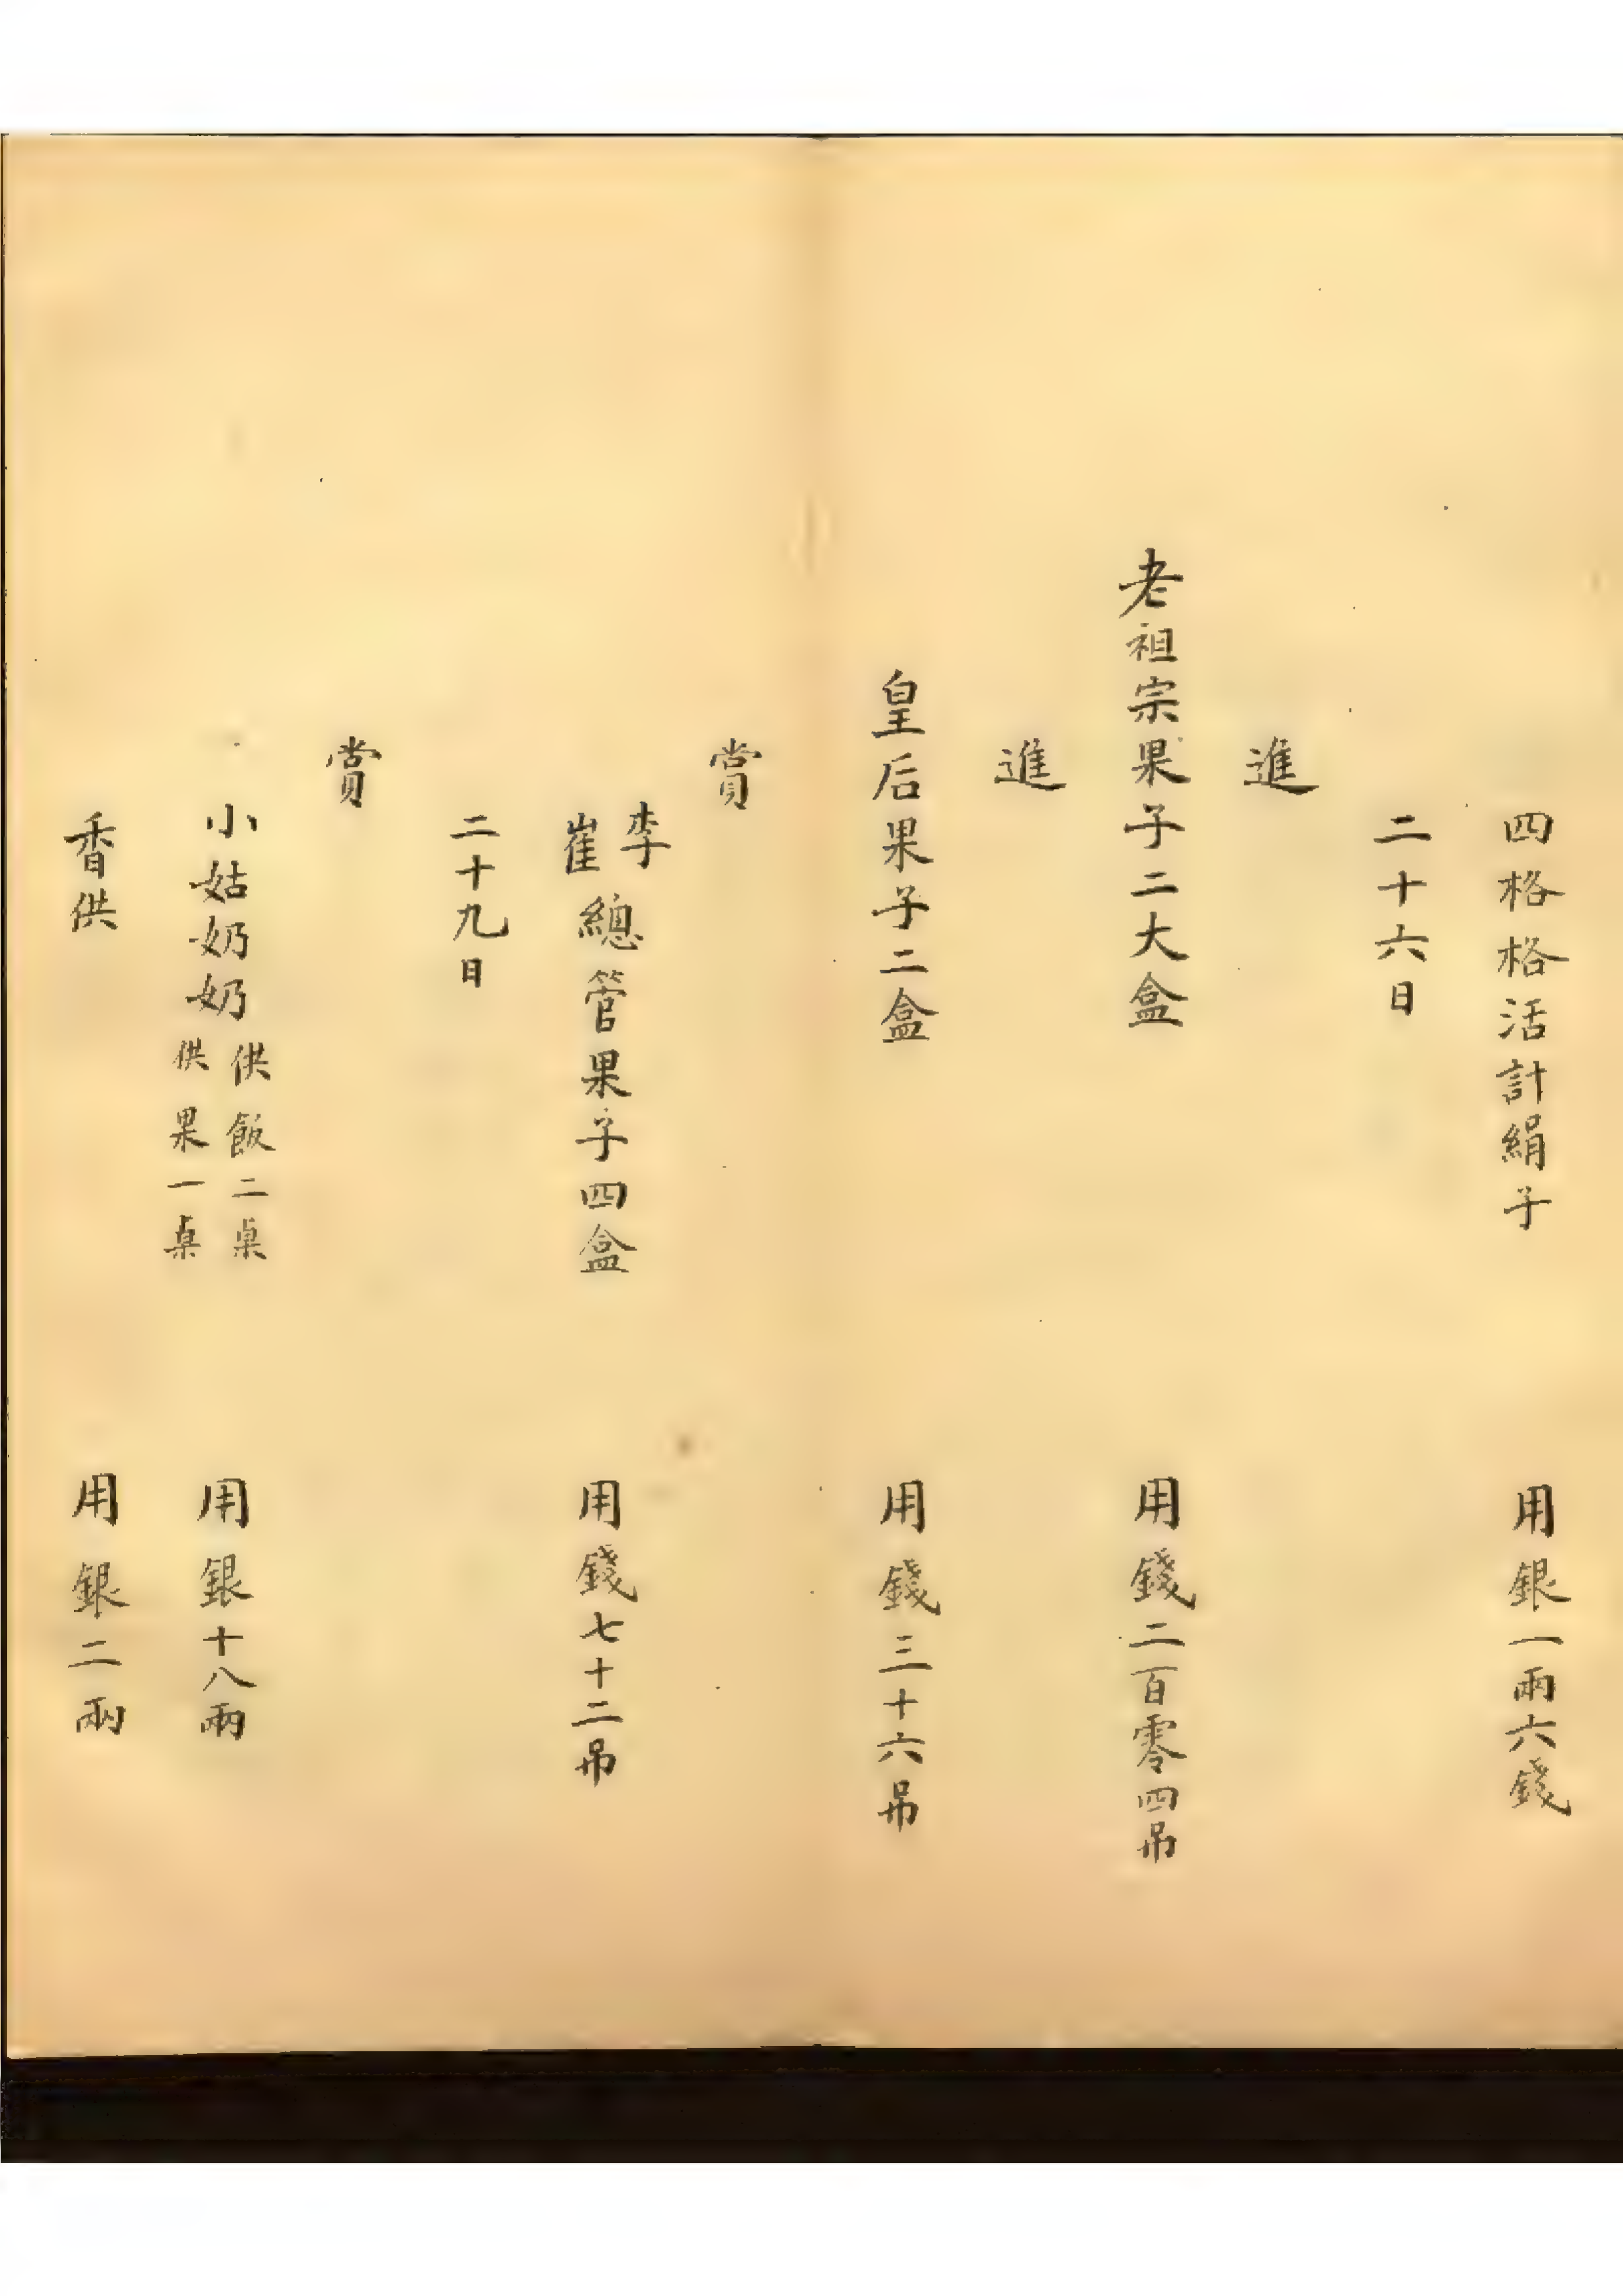 四格格活計絹子　用銀一兩六錢
二十六日
進
老祖宗果子二大盒　用錢二百零四吊
進
皇后果子二盒　用錢三十六吊
賞
李
崔
總管果子四盒　用錢七十二吊
二十九日
賞
小姑奶奶
供飯二桌
供果一桌
用銀十八兩
香供　用銀二兩